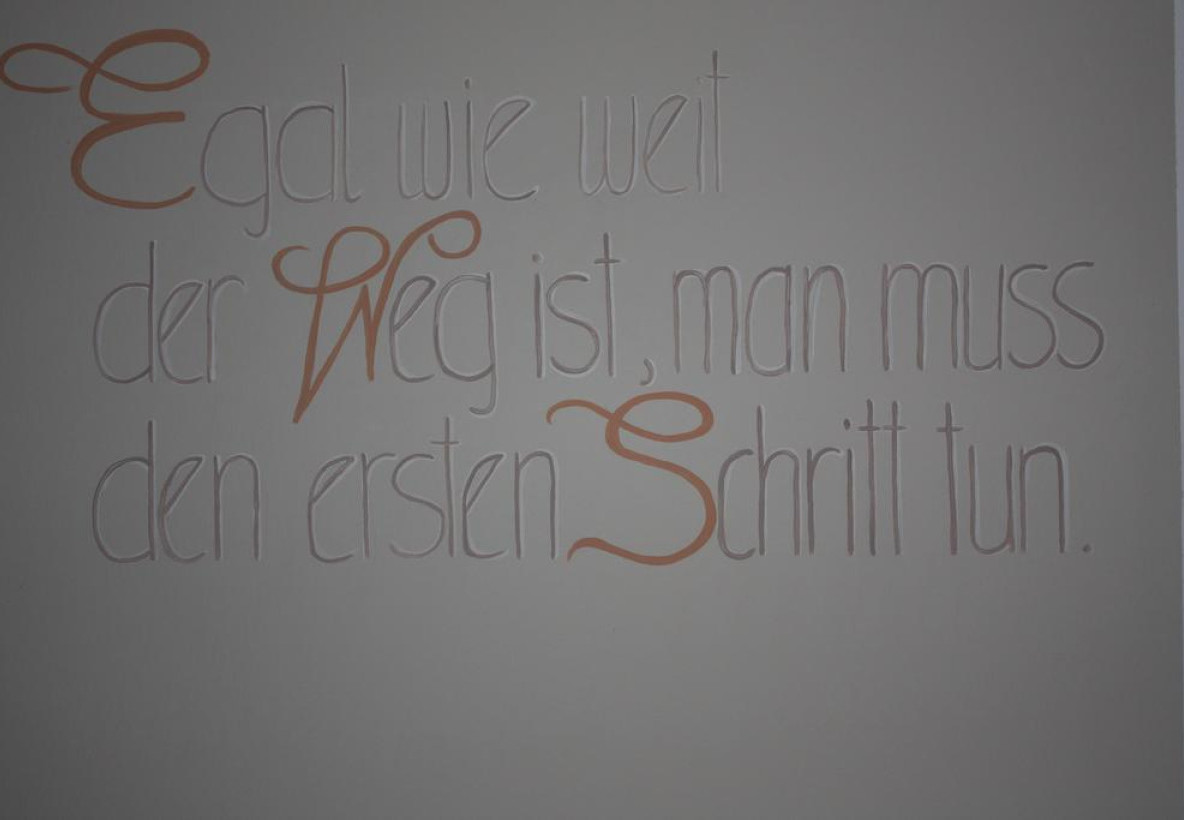 Egal wie weit
der Weg ist, man muss
den ersten Schritt tun.